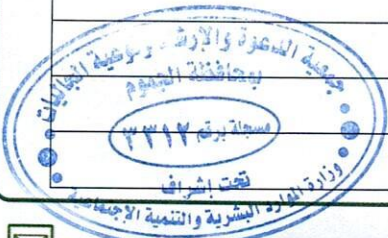 جمعية الدعوة والإرشاد وتوعية الجاليات
بمحافظة الجموم
مسجلة برقم ٣٣١٢
تحت إشراف
وزارة الموارد البشرية والتنمية الاجتماعية